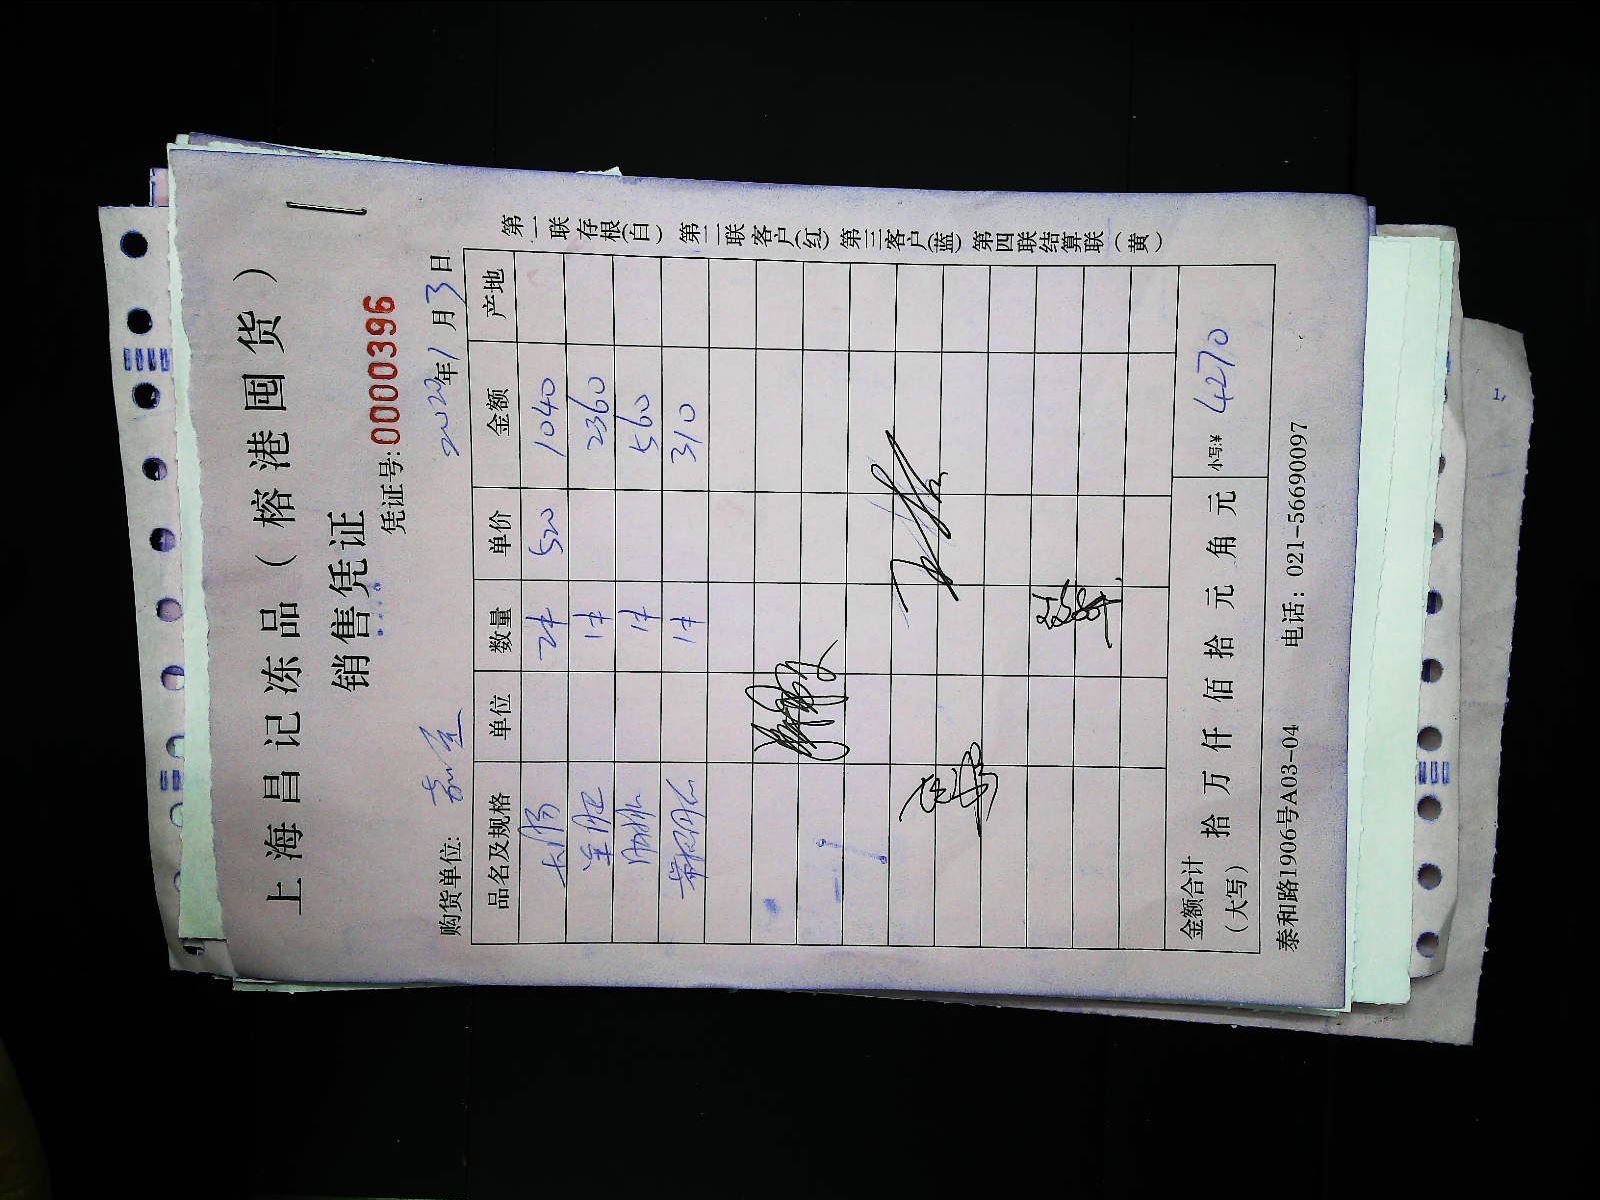 上海昌记冻品（榕港囤货）
销售凭证
凭证号:0000396
购货单位: 2022年1月3日
品名及规格 单位 数量 单价 金额 产地
大肠 2件 520 1040
1件 2360
1件 560
1件 310
金额合计（大写） 拾 万 仟 佰 拾 元 角 元 小写:¥ 4270
泰和路1906号A03-04 电话: 021-56690097
第一联存根(白) 第二联客户(红) 第三客户(蓝) 第四联结算联（黄）